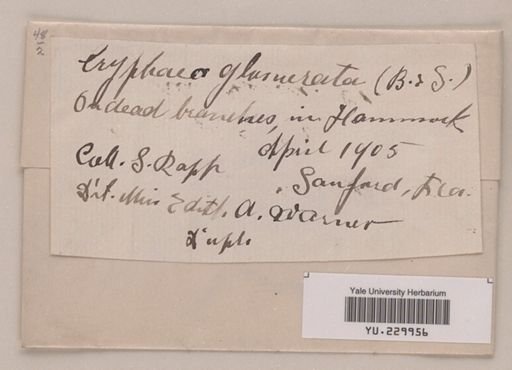 48
2
Cryphaea glomerata (B. & S.)
On dead branches, in Hammock
April 1905
Coll. S. Rapp
Sanford, Fla.
Det. Miss Edith A. Warner
Dupl.
Yale University Herbarium
YU.229956